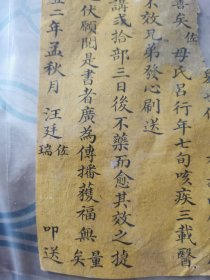 喜矣佐母氏呂行年七旬咳疾三載醫
不效兄弟發心刷送
講貳拾部三日後不藥而愈其效之捷
伏願閱是書者廣為傳播獲福無量矣
五二年孟秋月 汪廷佐瑞 叩送